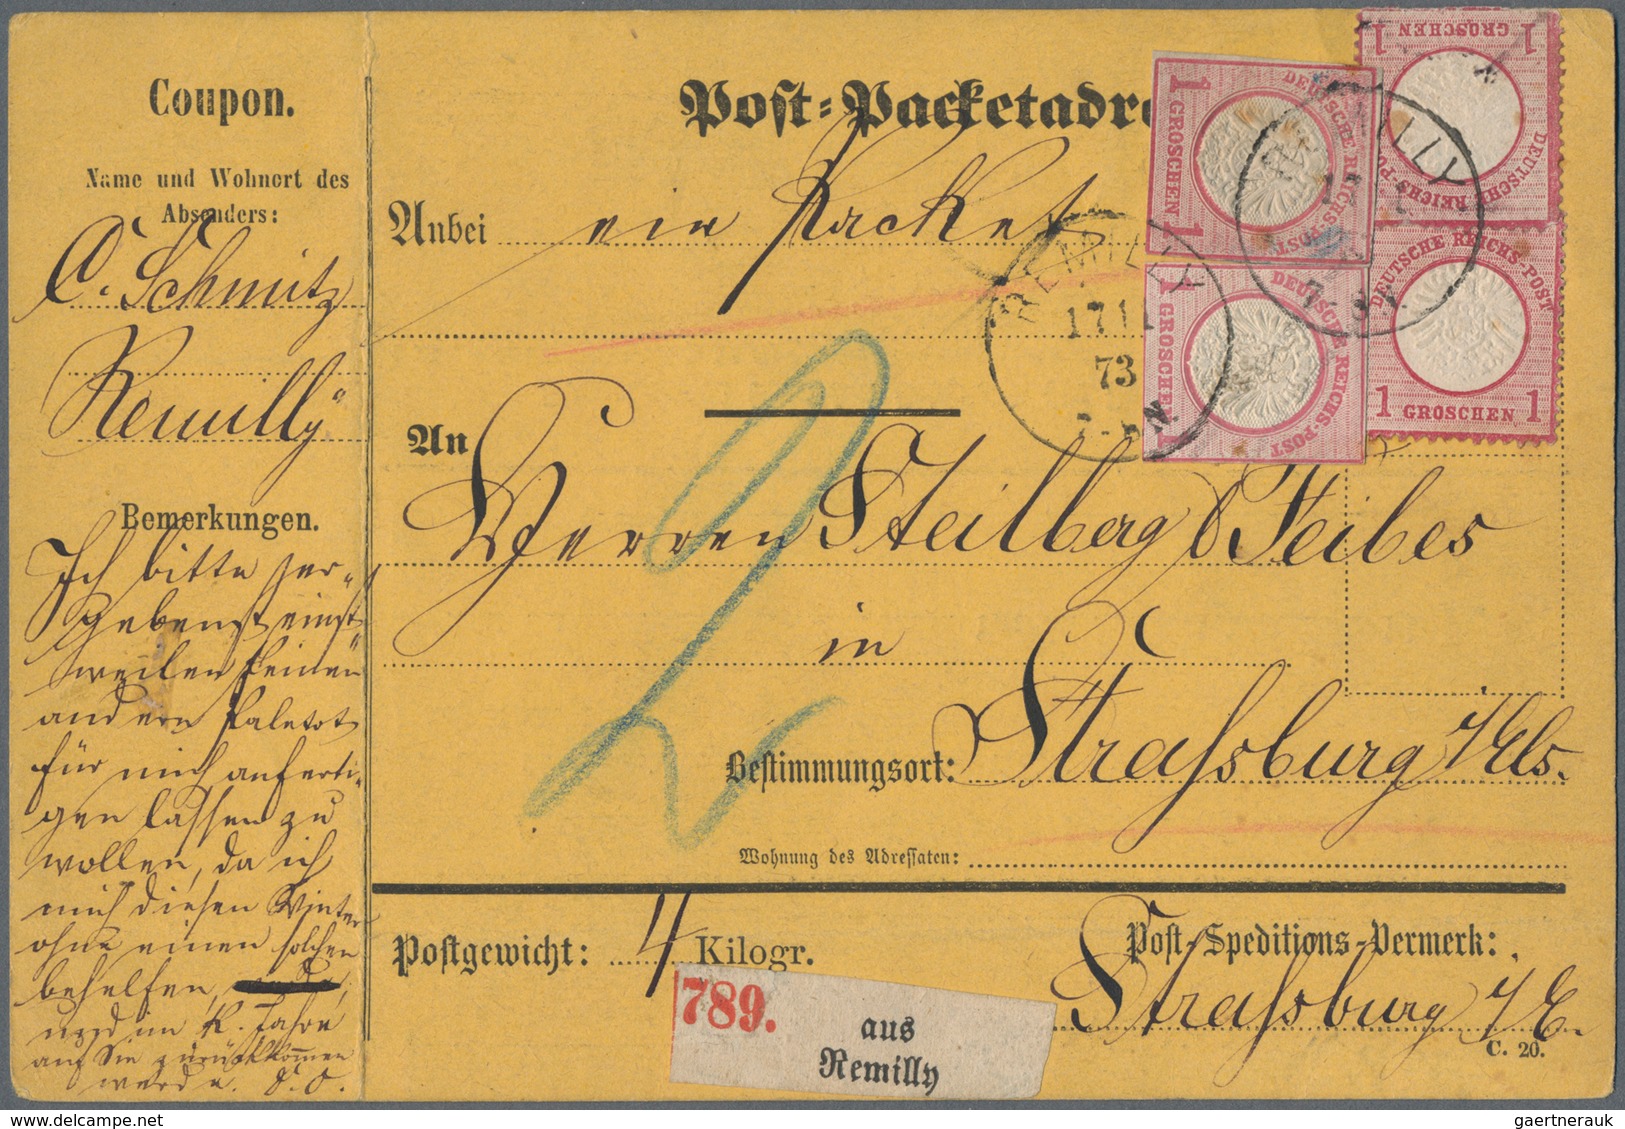 Coupon.
Name und Wohnort des
Absenders:
C. Schmitz
Remilly
Bemerkungen.
Ich bitte Sie er-
gebenst einst
weilen keinen
andern Paletot
für mich anferti-
gen lassen zu
wollen, da ich
mich diesen Winter
ohne einen solchen
behelfen,
und im n. Jahre
auf Sie zurückkommen
werde. D. O.
Post-Packetadre
Anbei ein Packet
An
Herren Steilberg & Feibes
in
Bestimmungsort: Straßburg i/Els.
Wohnung des Adressaten:
Postgewicht: 4 Kilogr.
Post-Speditions-Vermerk:
Straßburg i/E.
C. 20.
789.
aus
Remilly
2
1 GROSCHEN 1
DEUTSCHE REICHS-POST
1 GROSCHEN 1
DEUTSCHE REICHS-POST
1 GROSCHEN 1
DEUTSCHE REICHS-POST
1 GROSCHEN 1
DEUTSCHE REICHS-POST
REMILLY
17 11
73
REMILLY
delcampe.net
gaertnerauk